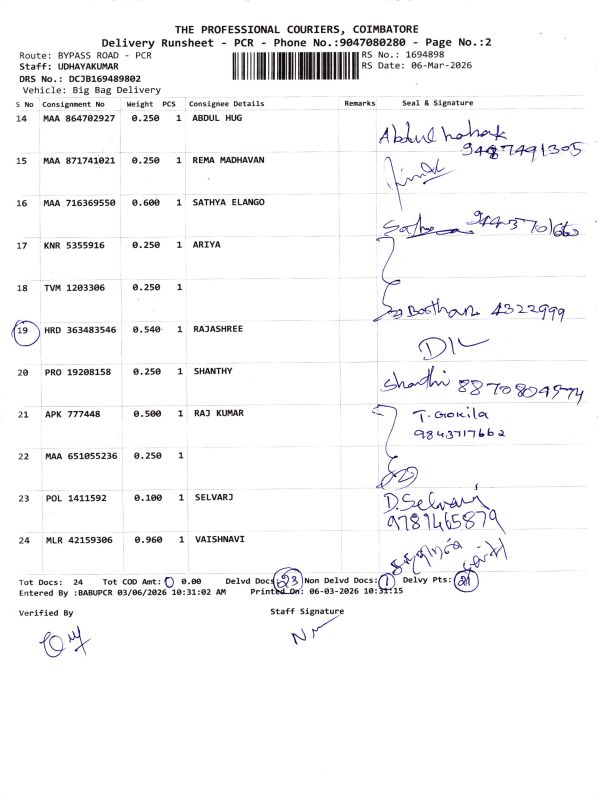 THE PROFESSIONAL COURIERS, COIMBATORE
Delivery Runsheet - PCR - Phone No.:9047080280 - Page No.:2
Route: BYPASS ROAD - PCR
RS No.: 1694898
Staff: UDHAYAKUMAR
RS Date: 06-Mar-2026
DRS No.: DCJB169489802
Vehicle: Big Bag Delivery
S No Consignment No Weight PCS Consignee Details Remarks Seal & Signature
14 MAA 864702927 0.250 1 ABDUL HUG
9487491305
15 MAA 871741021 0.250 1 REMA MADHAVAN
16 MAA 716369550 0.600 1 SATHYA ELANGO
17 KNR 5355916 0.250 1 ARIYA
18 TVM 1203306 0.250 1
4322999
19 HRD 363483546 0.540 1 RAJASHREE
D/L
20 PRO 19208158 0.250 1 SHANTHY
Shanthi
21 APK 777448 0.500 1 RAJ KUMAR T. Gokila
9843717662
22 MAA 651055236 0.250 1
23 POL 1411592 0.100 1 SELVARJ D. Selvaraj
9781465879
24 MLR 42159306 0.960 1 VAISHNAVI
Tot Docs: 24 Tot COD Amt: 0 0.00 Delvd Docs: 23 Non Delvd Docs: 1 Delvy Pts: 21
Entered By :BABUPCR 03/06/2026 10:31:02 AM Printed On: 06-03-2026 10:31:15
Verified By
Staff Signature